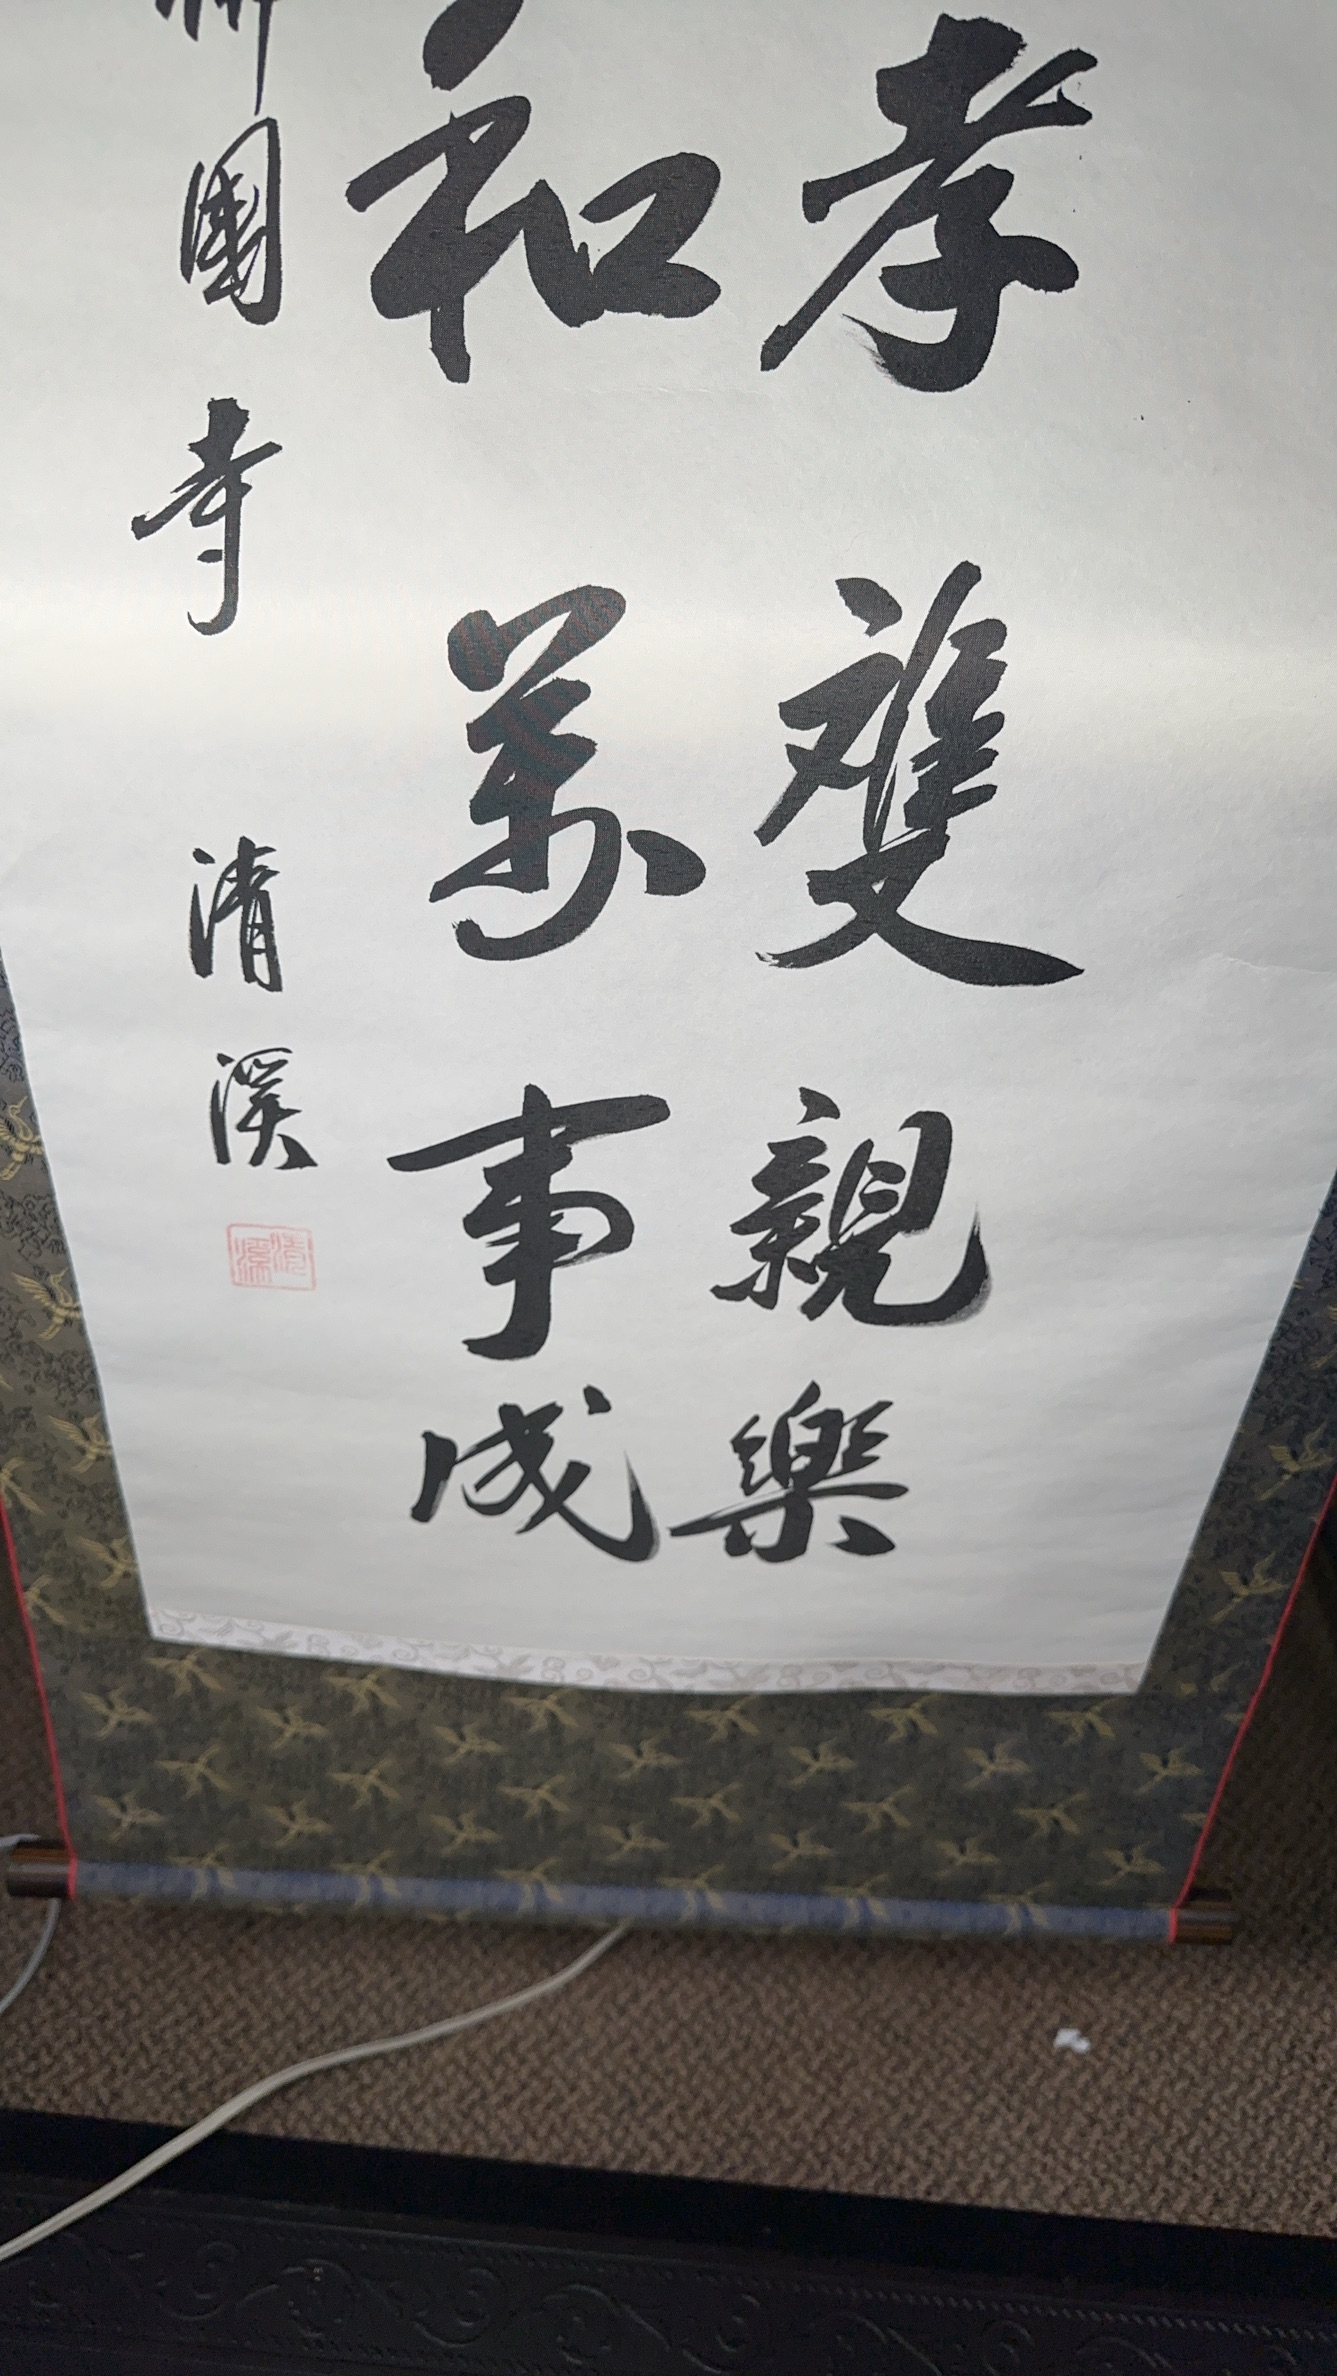 孝雙親樂
和萬事成
國寺 清溪
清溪